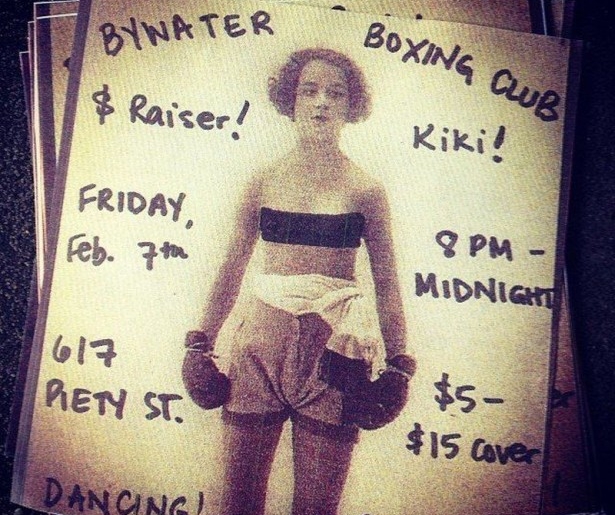 BYWATER BOXING CLUB
$ Raiser!
Kiki!
FRIDAY,
Feb. 7th
8 PM -
MIDNIGHT
617
PIETY ST.
$5-
$15 cover
DANCING!